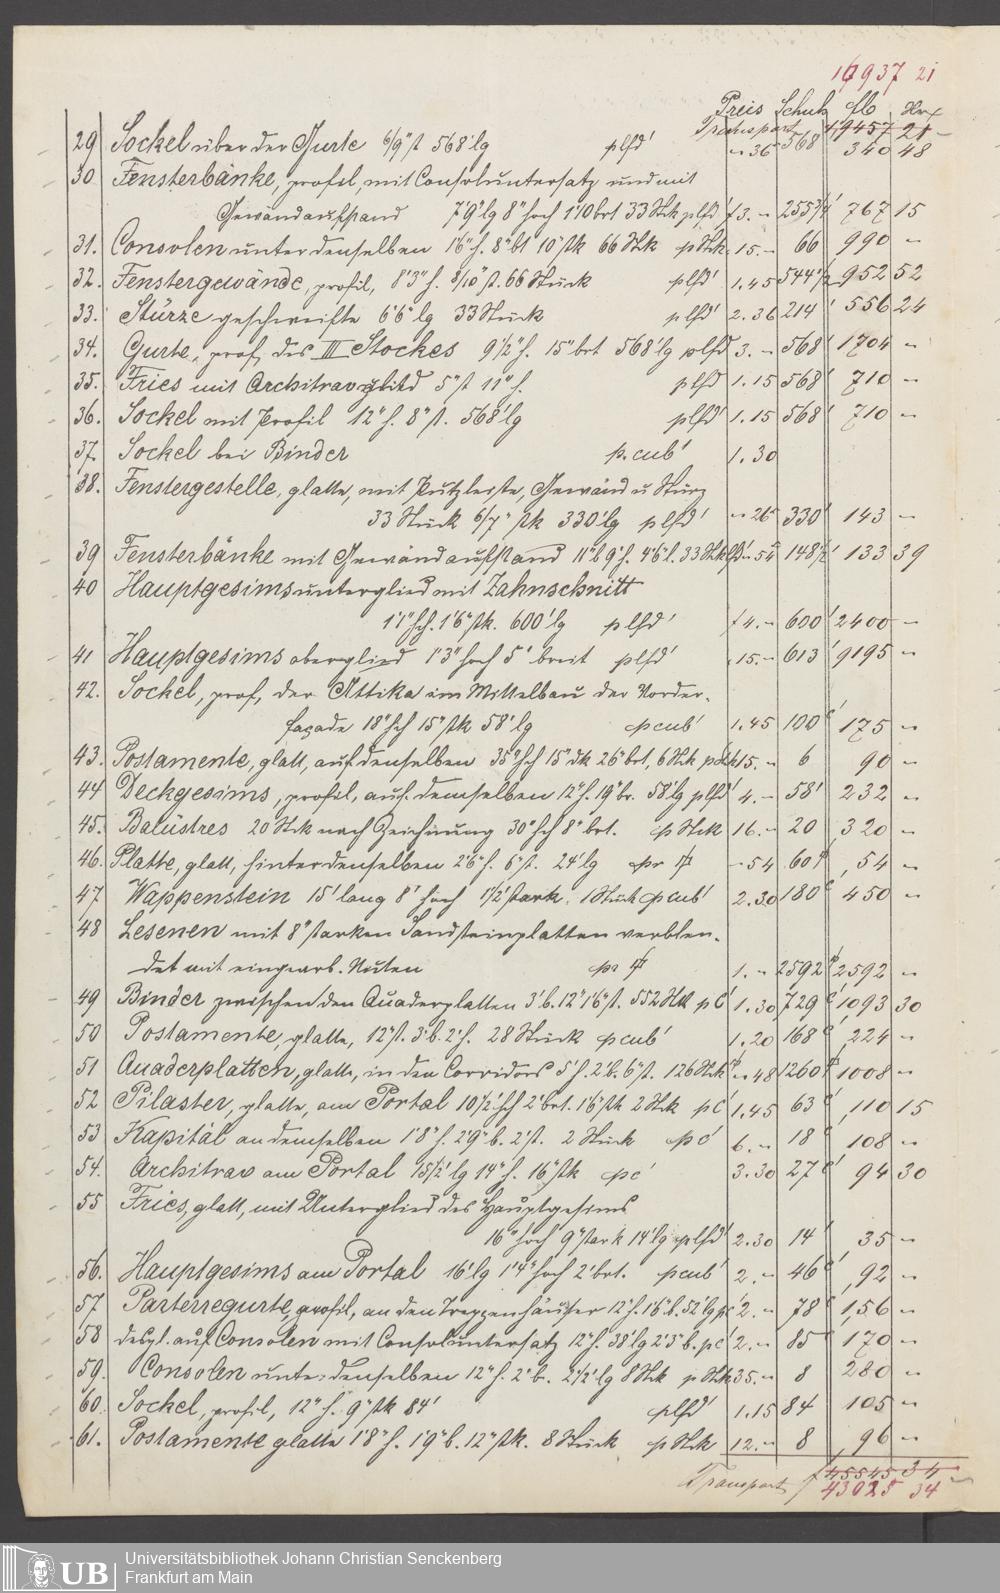 16937 21
Preis Schuh fl Kr
Transport 19457 21 –
29 Sockel über der Gurte 6/9" st 568' lg plfd' – 36 568' 340 48
30 Fensterbänke, profil, mit Consoluntersatz und mit
Gewändaufstand 7'9" lg 8" hoch 1'10 brt 33 Stk plfd' f 3. – 255 3/4' 767 15
31. Consolen unter denselben 1'6" h. 8" bt 10" stk 66 Stk p Stk 15. – 66 990 –
32. Fenstergewände, profil, 8'3" h. 8/10" st. 66 Stück plfd' 1.45 544 1/2' 952 52
33. Stürze geschweifte 6'6" lg 33 Stück plfd' 2.36 214' 556 24
34. Gurte, prof, des III Stockes 9 1/2" h. 15" brt 568' lg plfd' 3. – 568' 1704 –
35. Fries mit Architravglied 5" st 11" h. plfd 1.15 568' 710 –
36. Sockel mit Profil 12" h. 8" st. 568' lg plfd' 1.15 568' 710 –
37. Sockel bei Binder p. cub' 1.30
38. Fenstergestelle, glatte, mit Putzleiste, Gewänd u Sturz
33 Stück 6/7" stk 330' lg plfd' – 26 330' 143 –
39 Fensterbänke mit Gewändaufstand 11" b 9" h. 4'6" l. 33 Stk lfd' – 54 148 1/2' 133 39
40 Hauptgesimsunterglied mit Zahnschnitt
1'1" hch. 1'6" stk. 600' lg plfd' f 4. – 600' 2400 –
41 Hauptgesims oberglied 1'3" hoch 5' breit plfd' 15. – 613' 9195 –
42. Sockel, prof, der Attika im Mittelbau der Vorder-
façade 18" hch 15" stk 58' lg p cub' 1.45 100 c' 175 –
43. Postamente, glatt, auf denselben 35" hch 15" dk 26" brt, 6 Stk p Stk 15. – 6 90 –
44 Deckgesims, profil, auf demselben 12" h. 19" br. 58' lg plfd' 4. – 58' 232 –
45. Balüstres 20 Stck nach Zeichnung 30" hch 8" brt. p Stck 16. – 20 320 –
46. Platte, glatt, hinter denselben 2'6" h. 6" st. 24' lg pr □' – 54 60 □' 54 –
47 Wappenstein 15' lang 8' hoch 1 1/2' stark. 1 Stück p cub' 2.30 180 c' 450 –
48 Lesenen mit 8" starken Sandsteinplatten verblen-
det mit eingearb. Nuten pr □' 1. – 2592 □' 2592 –
49 Binder zwischen den Quaderplatten 3' b. 12" 1'6" st. 552 Stk p c' 1.30 729 c' 1093 30
50 Postamente, glatte, 12" st. 3' b. 2' h. 28 Stück p cub' 1.20 168 c' 224 –
51 Quaderplatten, glatte, in den Corridors 5' h. 2' b. 6" st. 126 Stk □' – 48 1260 □' 1008 –
52 Pilaster, glatte, am Portal 10 1/2' hch 2' brt. 1'6" stk 2 Stck p c' 1.45 63 c' 110 15
53 Kapitäl an demselben 1'8" h. 2'9" b. 2' st. 2 Stück p c' 6. – 18 c' 108 –
54. Architrav am Portal 15 1/2' lg 14" h. 16" stk p c' 3.30 27 c' 94 30
55 Fries, glatt, mit Unterglied des Hauptgesims
16" hoch 9" stark 14' lg plfd' 2.30 14' 35 –
56. Hauptgesims am Portal 16' lg 1'4" hoch 2' brt. p cub' 2. – 46 c' 92 –
57 Parterregurte, profil, an den Treppenhäuser 12" h. 1'6" b. 52' lg p c' 2. – 78 c' 156 –
58 desgl. auf Consolen mit Consoluntersatz 12" h. 38' lg 2'3" b. p c' 2. – 85 c' 170 –
59. Consolen unter denselben 12" h. 2' b. 2 1/2' lg 8 Stk p Stk 35. – 8 280 –
60. Sockel, profil, 12" h. 9" stk 84' plfd' 1.15 84 105 –
61. Postamente glatte 1'8" h. 1'9" b. 12" stk. 8 Stück p Stck 12. – 8 96 –
Transport f 45545 34
43025 34
UB Universitätsbibliothek Johann Christian Senckenberg
Frankfurt am Main